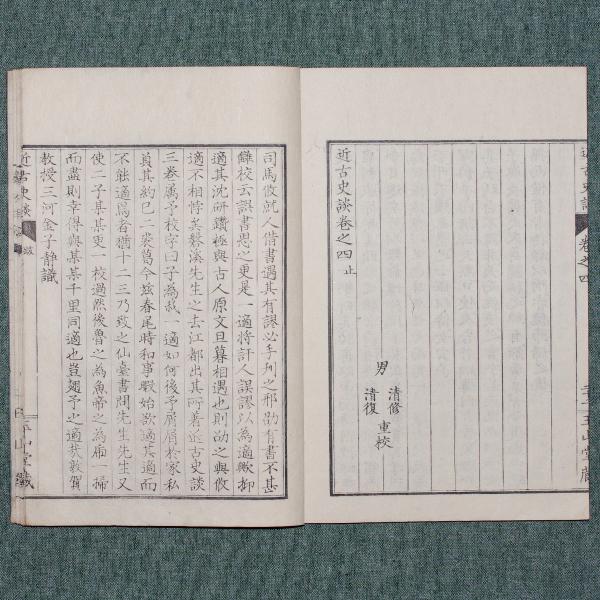 近古史談
卷之四
近古史談卷之四 止
男 清修
清復
重校
司馬攸就人借書遇其有謬必手刋之邢劭有書不甚
讎校云誤書思之更是一適將訐人誤謬以為適歟抑
適其沈研鑽極與古人原文旦暮相遇也則劭之與攸
適不相悖矣磐溪先生之去江都出其所著近古史談
三卷属予校字曰子為裁一適如何後予屑屑於家私
負其約已二裘葛今玆春尾時和事暇始欲適其適而
不能適焉者猶十二三乃致之仙臺書問先生先生又
使二子某某更一校過然後魯之為魚帝之為乕一掃
而盡則幸得與某某千里同適也豈翅予之適哉敦賀
教授三河金子静識
近古史談
跋